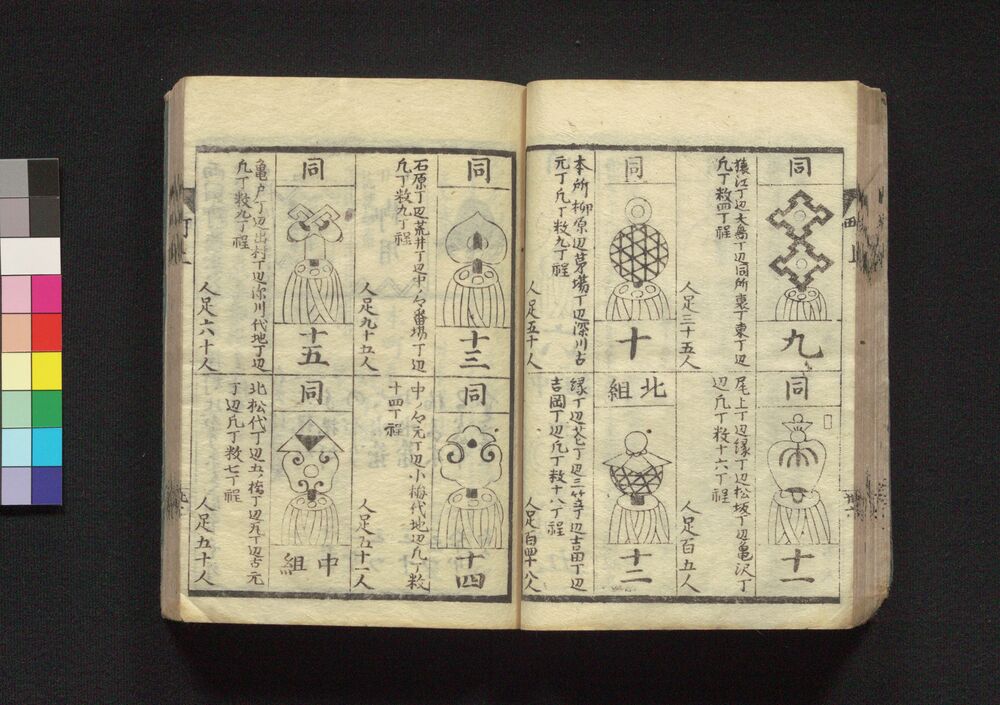 同
九
猿江丁辺大島丁辺同所裏丁東丁辺
凡丁数四丁程
人足三十五人
同
十一
尾上丁辺緑丁辺松坂丁辺亀沢丁
辺凡丁数十六丁程
人足百五人
同
十
本所柳原辺茅場丁辺深川古
元丁凡丁数九丁程
人足五十人
北組
十二
緑丁辺花丁辺三笠丁辺吉田丁辺
吉岡丁辺凡丁数十八丁程
人足百四十八人
同
十三
石原丁辺荒井丁辺中ノ郷番場丁辺
凡丁数九丁程
人足九十五人
同
十四
中ノ郷元丁辺小梅代地辺凡丁数
十四丁程
人足五十一人
同
十五
亀戸丁辺出村丁辺深川代地丁辺
凡丁数九丁程
人足六十人
同
中組
北松代丁辺五ノ橋丁辺
丁辺凡丁数七丁程
人足五十人